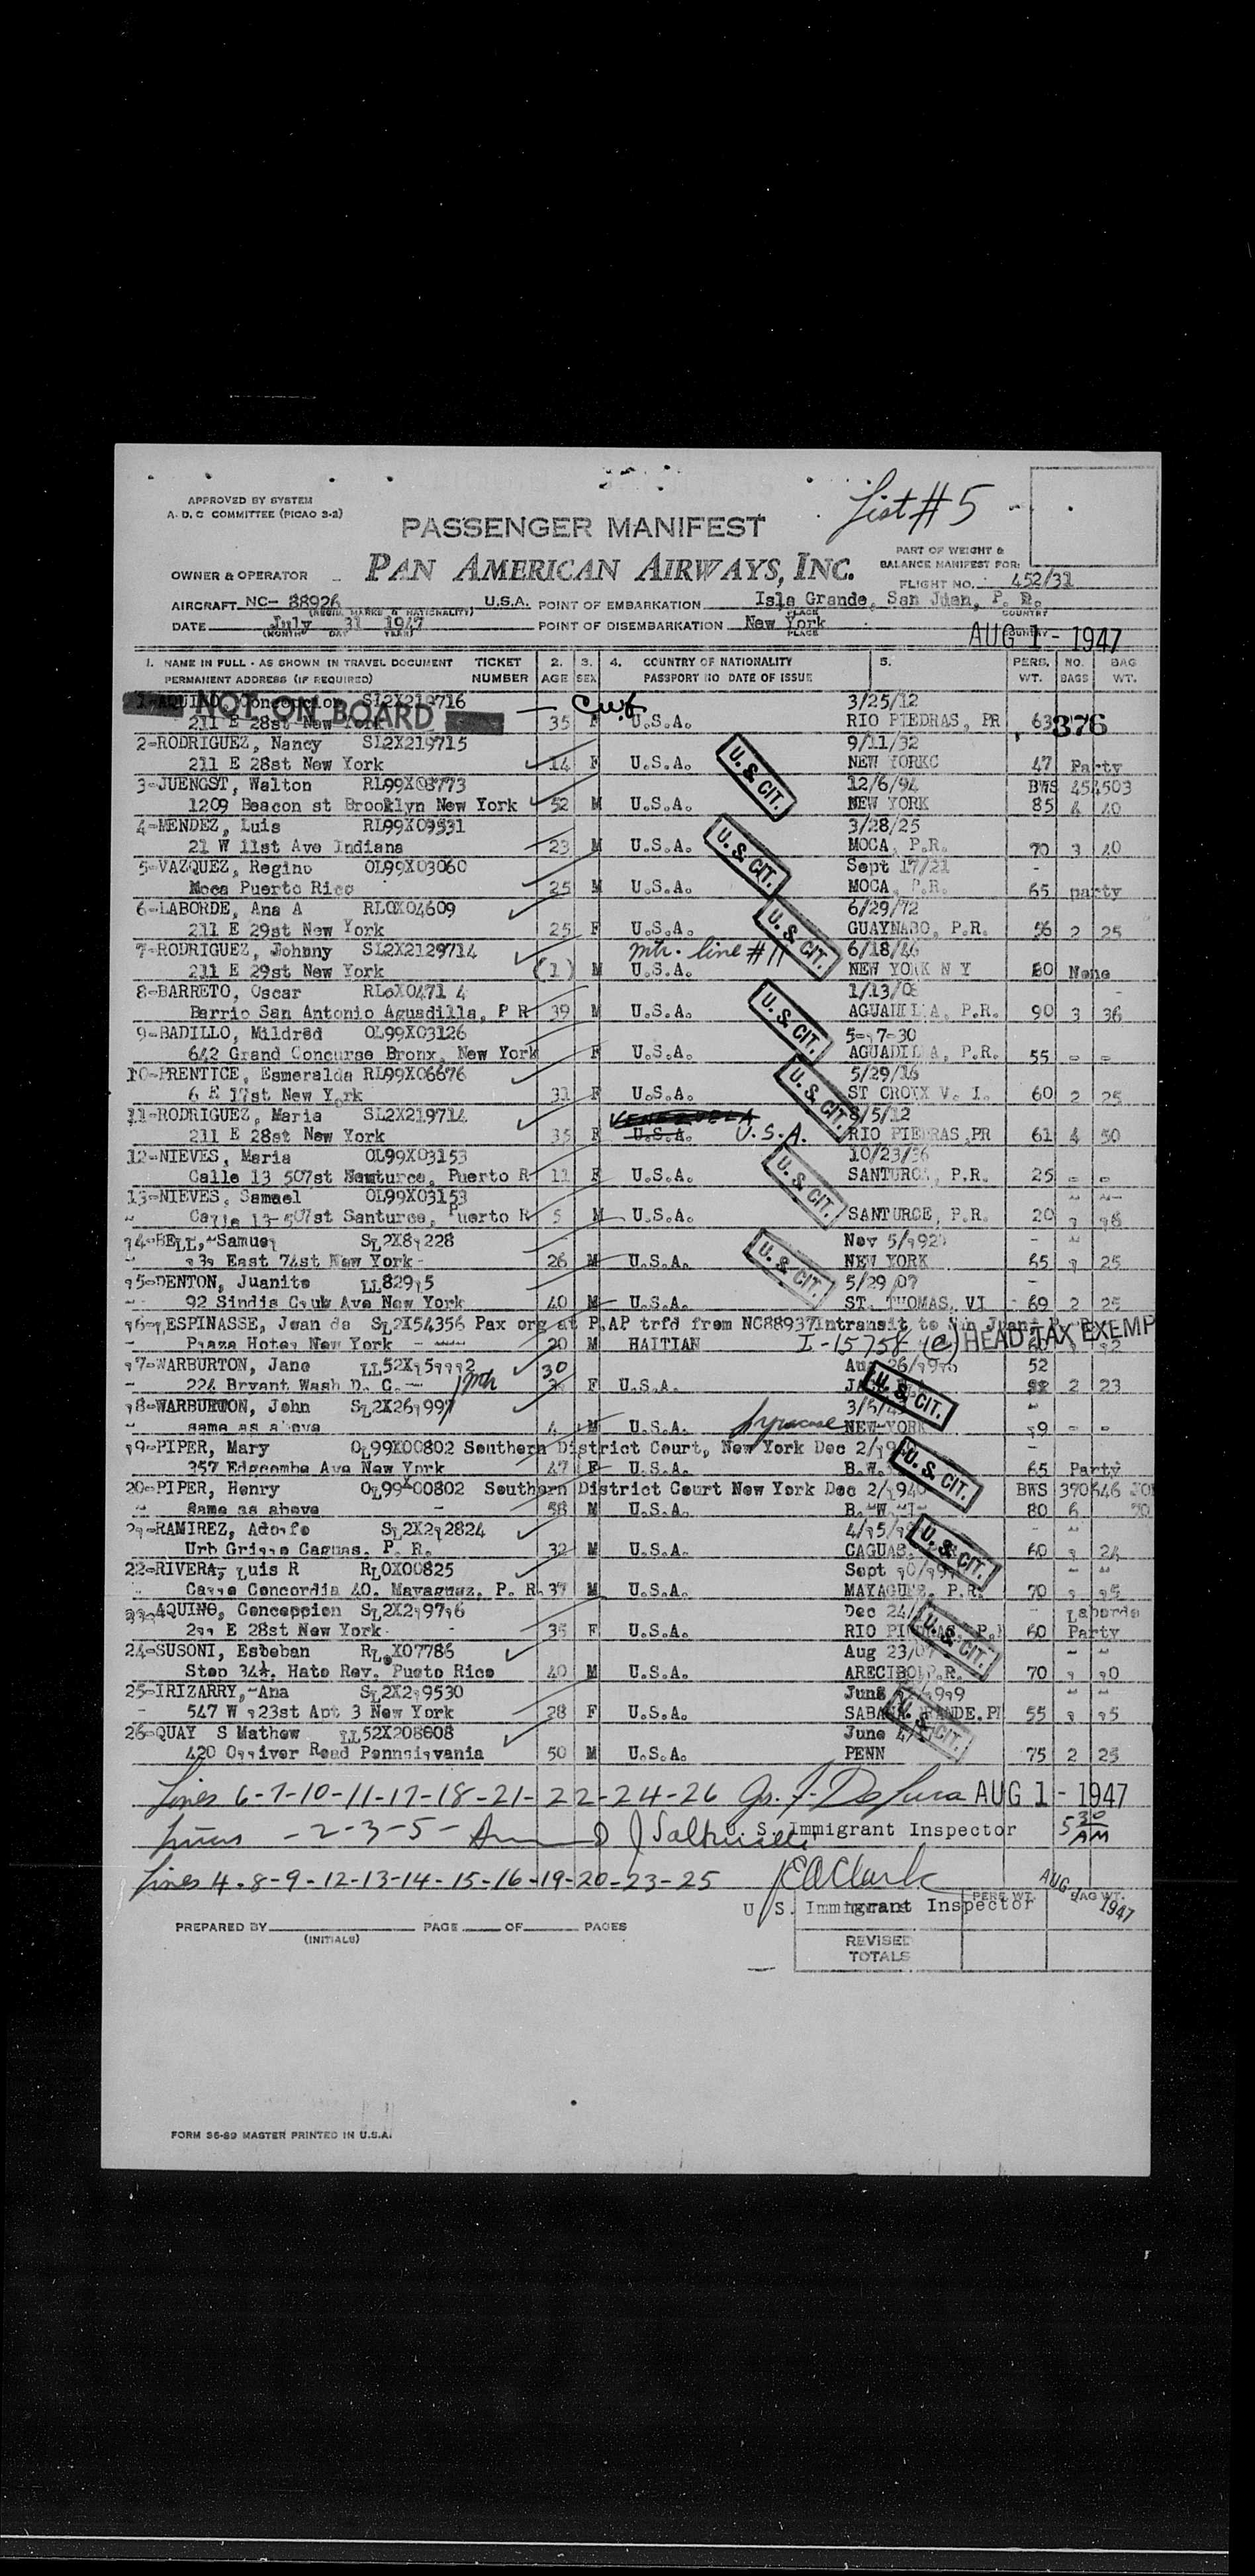 List # 5
APPROVED BY SYSTEM
A. D. C COMMITTEE (PICAO 3-2)
PASSENGER MANIFEST
PART OF WEIGHT &
BALANCE MANIFEST FOR:
OWNER & OPERATOR PAN AMERICAN AIRWAYS, INC.
FLIGHT NO. 452/31
AIRCRAFT NC- 88926 U.S.A. POINT OF EMBARKATION Isla Grande, San Juan, P. R.
(REGN. MARKS & NATIONALITY) PLACE COUNTRY
DATE July 31 1947 POINT OF DISEMBARKATION New York
(MONTH DAY YEAR) PLACE
AUG 1 - 1947
1. NAME IN FULL - AS SHOWN IN TRAVEL DOCUMENT TICKET 2. 3. 4. COUNTRY OF NATIONALITY 5. PERS. NO. BAG
PERMANENT ADDRESS (IF REQUIRED) NUMBER AGE SEX PASSPORT NO DATE OF ISSUE WT. BAGS WT.
1-AQUINO, Concepcion S12X219716 3/25/12
NOT ON BOARD
211 E 28st New York 35 U.S.A. RIO PIEDRAS, PR 63 376
2-RODRIGUEZ, Nancy S12X219715 9/11/32
211 E 28st New York 14 F U.S.A. NEW YORKC 47 Party
U. S. CIT.
3-JUENGST, Walton RL99X03773 12/6/94 BWS 454503
1209 Beacon st Brooklyn New York 52 M U.S.A. NEW YORK 85 4 40
4-MENDEZ, Luis RL99X09531 3/28/25
21 W 11st Ave Indiana 23 M U.S.A. MOCA, P.R. 70 3 40
U. S. CIT.
5-VAZQUEZ, Regino OL99X03060 Sept 17/21 -
Moca Puerto Rico 25 M U.S.A. MOCA, P.R. 65 party
6-LABORDE, Ana A RL0X04609 6/29/72
211 E 29st New York 25 F U.S.A. GUAYNABO, P.R. 56 2 25
U. S. CIT.
7-RODRIGUEZ, Johnny S12X2129714 mtr. line # 11 6/18/46
211 E 29st New York (1) M U.S.A. NEW YORK N Y 80 None
8-BARRETO, Oscar 1/13/08
Barrio San Antonio Aguadilla, P R 39 M U.S.A. AGUADILLA, P.R. 90 3 36
U. S. CIT.
9-BADILLO, Mildred OL99X03126 5- 7-30
642 Grand Concurse Bronx, New York F U.S.A. AGUADILLA, P.R. 55 - -
10-PRENTICE, Esmeralda RL99X06676 5/29/16
6 E 17st New York 31 F U.S.A. ST CROIX V. I. 60 2 25
U. S. CIT.
11-RODRIGUEZ, Maria S12X219714 VENEZUELA /5/12
211 E 28st New York 35 F U.S.A. U.S.A. RIO PIEDRAS,PR 61 4 50
12-NIEVES, Maria OL99X03153 10/23/36
Calle 13 507st Santurce, Puerto R 11 F U.S.A. SANTURCE, P.R. 25 - -
U. S. CIT.
13-NIEVES, Samuel OL99X03153
Calle 13-507st Santurce, Puerto R 5 M U.S.A. SANTURCE, P.R. 20
14-BELL, Samuel SL2X81228 Nov 5/192
East 74st New York 26 M U.S.A. NEW YORK 65 1 25
U. S. CIT.
15-DENTON, Juanito LL82915 5/29/07
92 Sindis Ave New York 40 M U.S.A. ST. THOMAS, VI 69 2 25
16-LESPINASSE, Jean de SL2X54356 Pax org at P.AP trfd from NC88937Intransit to San Juan
Plaza Hotel New York 20 M HAITIAN I-15758 (e) HEAD TAX EXEMP
17-WARBURTON, Jane 30 Aug 26/1916 52
224 Bryant Wash D. C. F U.S.A. 2 23
U. S. CIT.
18-WARBURTON, John SL2X261997
same as above 4 M U.S.A. Syracuse NEW-YORK 19 - -
19-PIPER, Mary OL99X00802 Southern District Court, New York Dec 2/1940
357 Edgecombe Ave New York 47 F U.S.A. B.W. 65 Party
U. S. CIT.
20-PIPER, Henry OL99X00802 Southern District Court New York Dec 2/1940 BWS 370646
Same as above 58 M U.S.A. B. W. I 80 6
21-RAMIREZ, Adolfo SL2X212824
Urb Grilla Caguas, P. R. 32 M U.S.A. CAGUAS, 60 1 24
U. S. CIT.
22-RIVERA, Luis R RL0X00825 Sept
Calle Concordia 40. Mayaguez. P. R. 37 M U.S.A. MAYAGUEZ. P.R. 70 1 15
23-AQUINO, Conceppion SL2X219716 Dec 24/ Laborde
211 E 28st New York 35 F U.S.A. RIO PIEDRAS, P.R 60 Party
U. S. CIT.
24-SUSONI, Esteban Aug 23/07
Stop 34½. Hato Rey. Pueto Rico 40 M U.S.A. ARECIBO P.R. 70 1 10
25-IRIZARRY, Ana SL2X219530 June 1919
547 W 123st Apt 3 New York 28 F U.S.A. SABANA GRANDE.PR 55 1 15
U. S. CIT.
26-QUAY S Mathew LL52X208608 June 4/
420 Olliver Road Pennsilvania 50 M U.S.A. PENN 75 2 25
Lines 6-7-10-11-17-18-21-22-24-26 AUG 1 - 1947
Lines -2-3-5- U. S. Immigrant Inspector 5 30 AM
Lines 4-8-9-12-13-14-15-16-19-20-23-25 Clark
U. S. Immigrant Inspector PERS. WT. BAG WT.
AUG 1947
PREPARED BY PAGE OF PAGES
(INITIALS)
REVISED
TOTALS
FORM 36-89 MASTER PRINTED IN U.S.A.